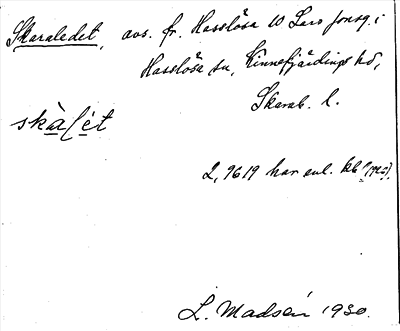 Skaraledet, avs. fr. Hasslösa 10 Lars jonsg. i
Hasslösa sn, Kinnefjärdings hd,
Skarab. l.
skàlét
2,9619 har enl. kb
L. Madsén 1930.